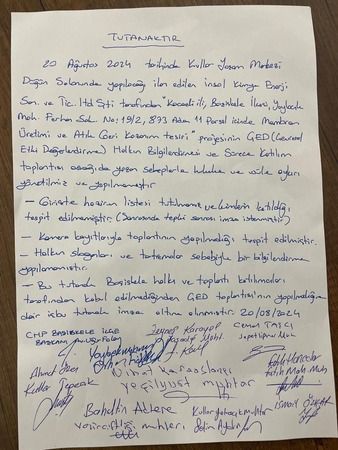 TUTANAKTIR
20 Ağustos 2024 tarihinde Kullar Yaşam Merkezi
Düğün Salonunda yapılacağı ilan edilen İnsol Kimya Enerji
San. ve Tic. ltd Şti tarafından "Kocaeli ili, Başiskele İlçesi, Yaylacık
Mah. Ferhan Sok No: 19/2, 873 Ada 11 Parsel içinde Membran
Üretimi ve Atık Geri Kazanım tesisi" projesinin ÇED (Çevresel
Etki Değerlendirme) Halkın Bilgilendirmesi ve Sürece Katılım
toplantısı aşağıda yazan sebeplerle hukuka ve usule aykırı
yönetilmiş ve yapılmamıştır
- Girişte hazirun listesi tutulmamış kimlerin katıldığı
tespit edilmemiştir. (Sonrasında tepki sonrası imza istenmiştir)
- Kamera kayıtlarıyla toplantının yapılmadığı tespit edilmiştir.
- Halkın sloganları ve sebebiyle bir bilgilendirme
yapılamamıştır.
- Bu tutanak Başiskele halkı ve toplantı katılımcıları
tarafından kabul edilmediğinden ÇED toplantısı'nın yapılmadığına
dair işbu tutanak imza altına alınmıştır. 20/08/2024
CHP BAŞİSKELE İLÇE
BAŞKAN
Zeynep Karayol
Cemal TAŞCI
Ahmet
Kullar Tepecik
Fatih Mah Muh
Yeşilyurt muhtar
Kullar yakacık muhtar
İsmail